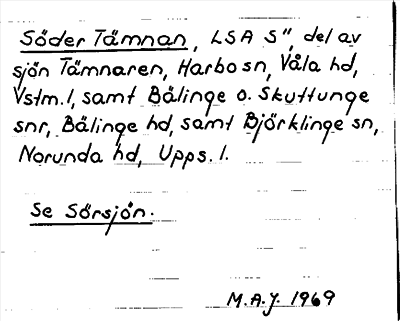 Söder Tämnan, LSA S", del av
sjön Tämnaren, Harbo sn, Våla hd,
Vstm. l, samt Bälinge o. Skuttunge
snr, Bälinge hd, samt Björklinge sn,
Norunda hd, Upps. l.
Se Sörsjön.
M.A.J. 1969